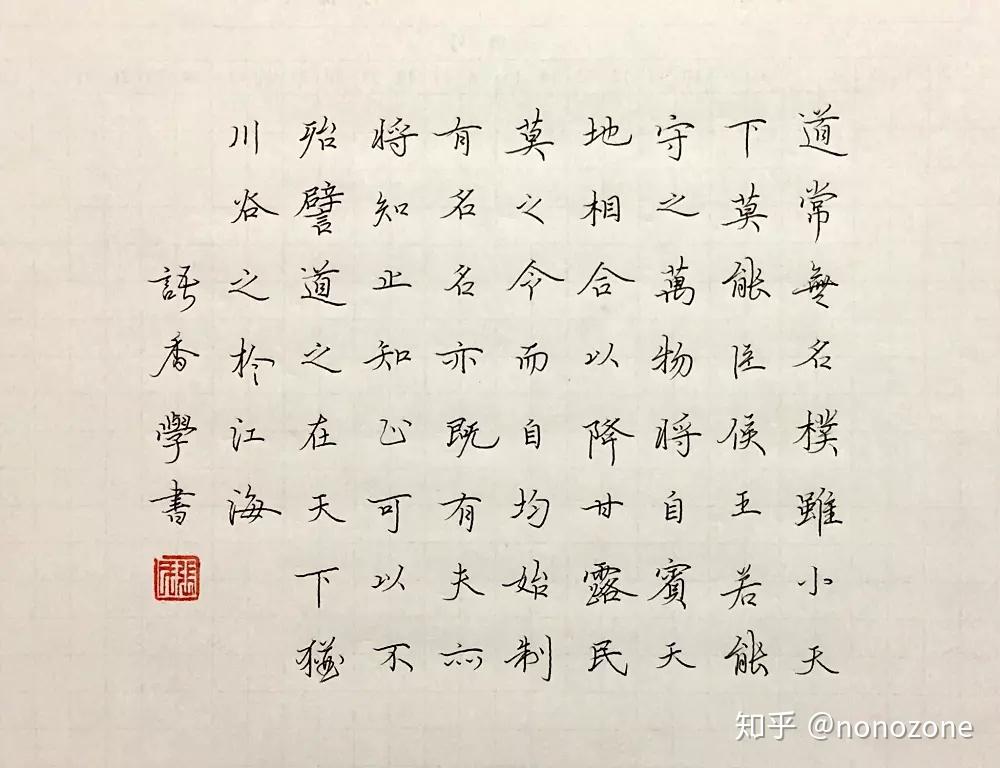 道常無名樸雖小天
下莫能臣侯王若能
守之萬物將自賓天
地相合以降甘露民
莫之令而自均始制
有名名亦既有夫亦
將知止知止可以不
殆譬道之在天下猶
川谷之於江海
語香學書
知乎 @nonozone